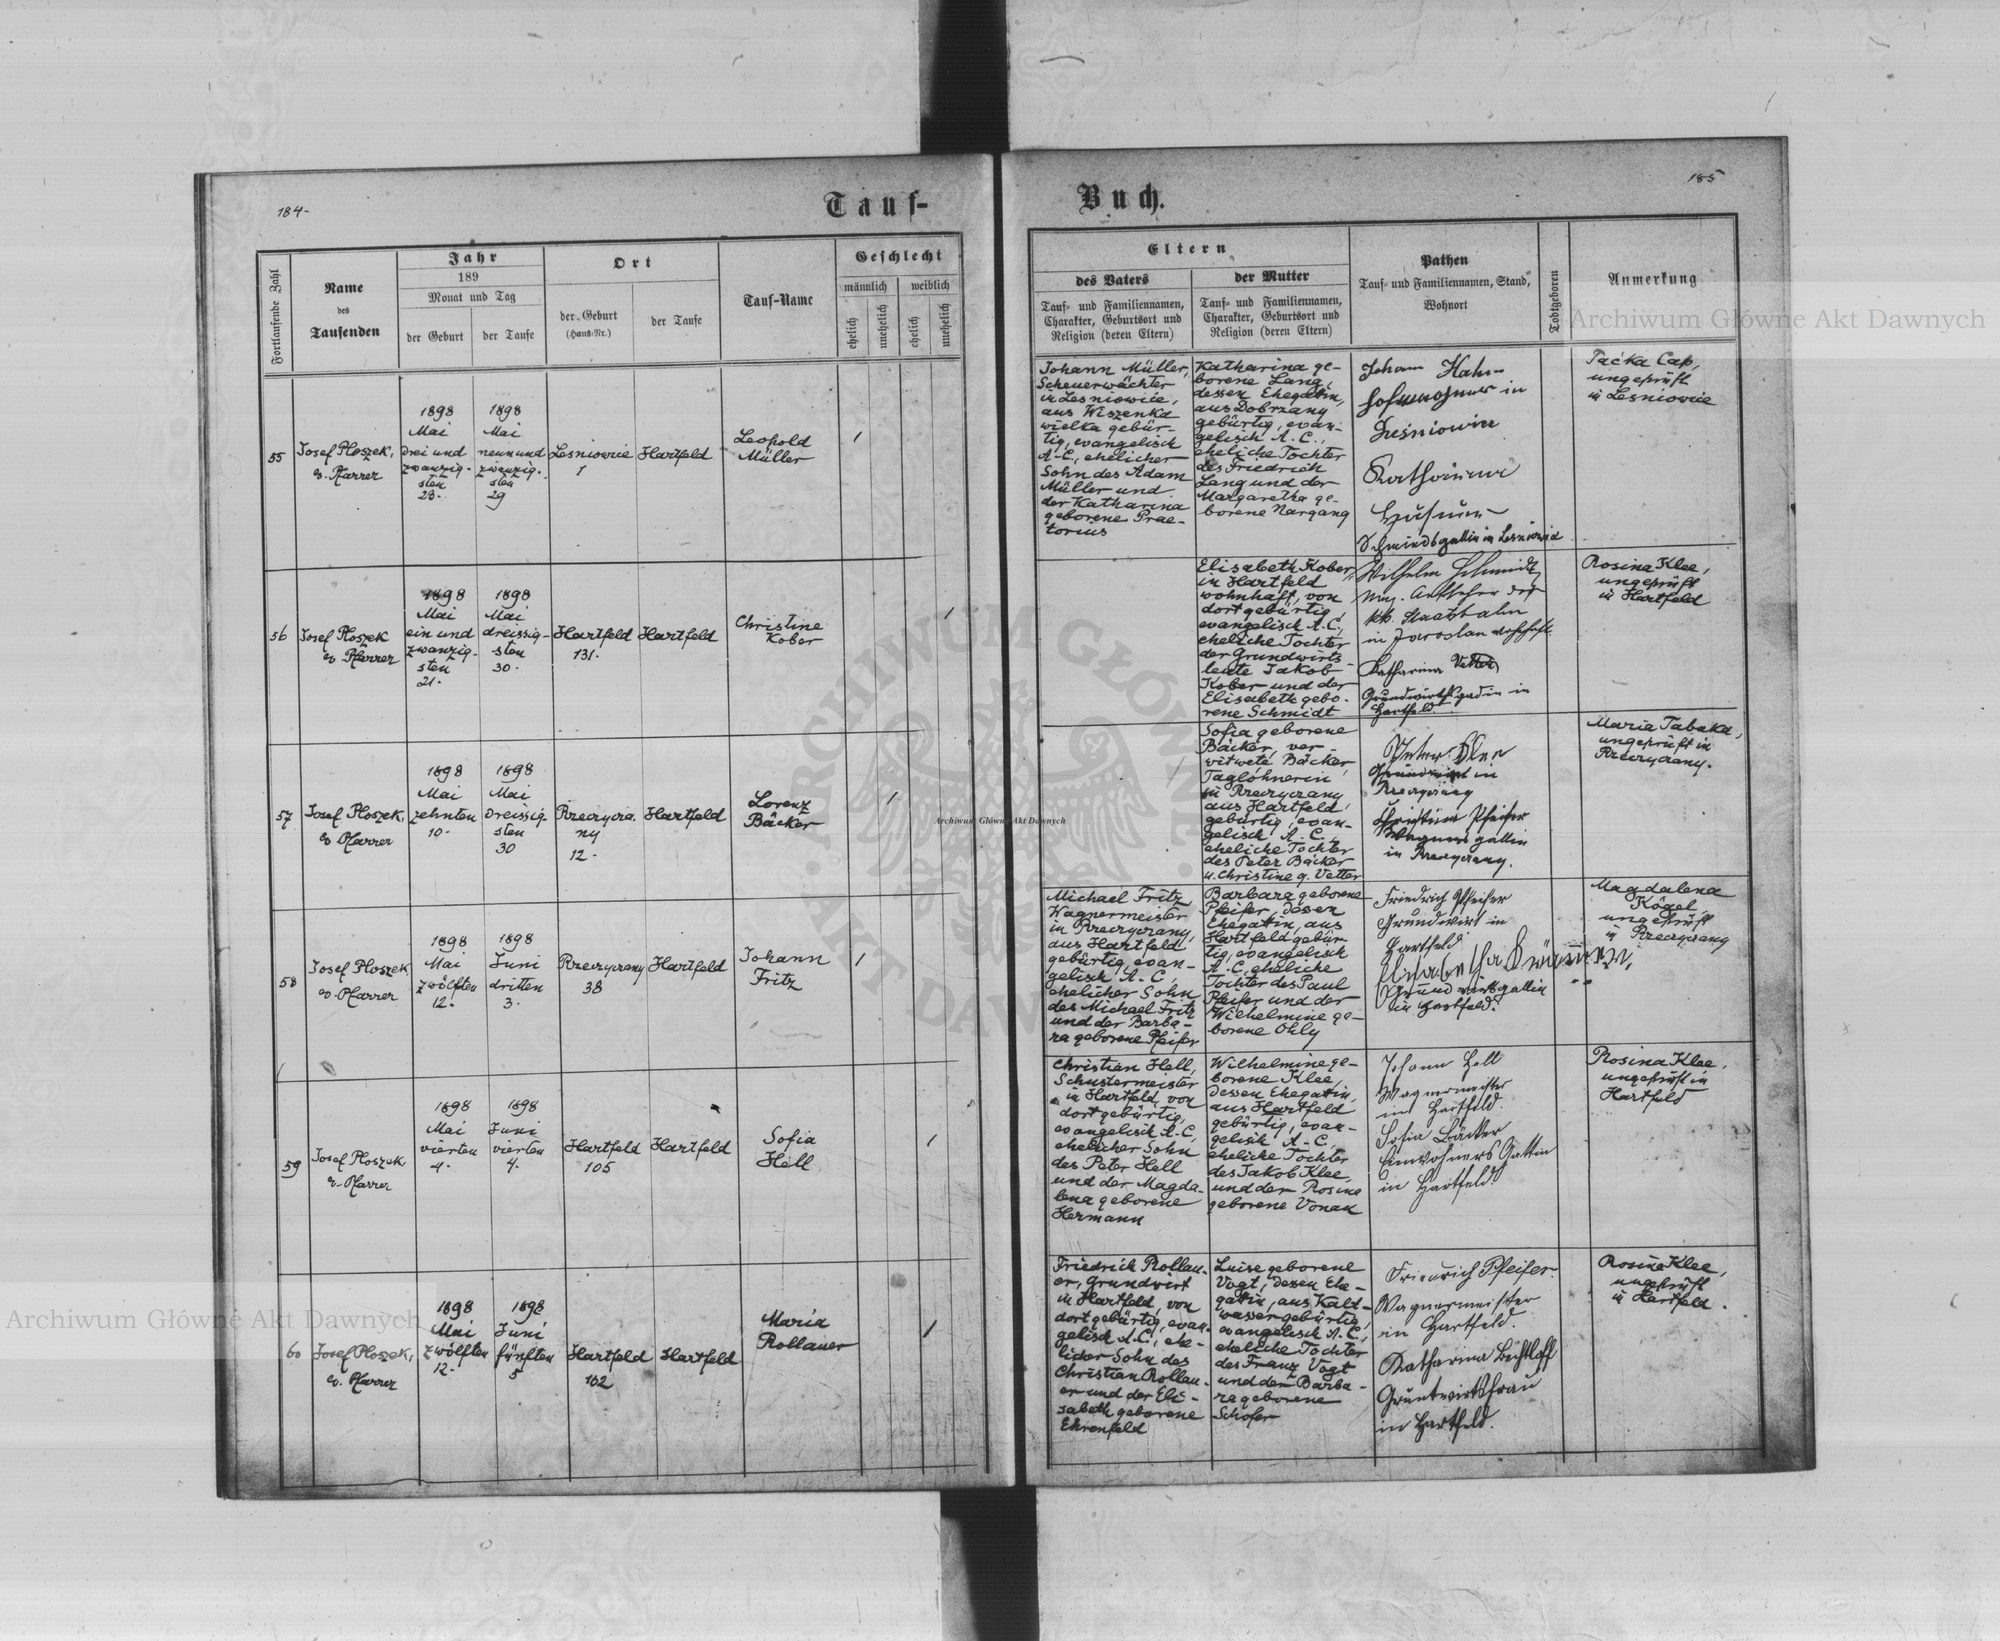 184-
Tauf-
Fortlaufende Zahl
Name
des
Taufenden
Jahr
189
Monat und Tag
der Geburt
der Taufe
Ort
der Geburt
(Haus-Nr.)
der Taufe
Tauf-Name
Geschlecht
männlich
weiblich
ehelich
unehelich
ehelich
unehelich
55
Josef Ploszek,
ev. Pfarrer
1898
Mai
drei und
zwanzig-
sten
23.
1898
Mai
neun und
zwanzig-
sten
29
Lesniowice
1
Hartfeld
Leopold
Müller
1
56
Josef Ploszek
ev Pfarrer
1898
Mai
ein und
zwanzig-
sten
21.
1898
Mai
dreissig-
sten
30.
Hartfeld
131.
Hartfeld
Christine
Kober
1
57
Josef Ploszek,
ev Pfarrer
1898
Mai
zehnten
10.
1898
Mai
dreissig
sten
30
Rzeczycza
ny
12.
Hartfeld
Lorenz
Bäcker
1
58
Josef Ploszek,
ev. Pfarrer
1898
Mai
zwölften
12.
1898
Juni
dritten
3.
Rzeczyczany
38
Hartfeld
Johann
Fritz
1
59
Josef Ploszek,
ev. Pfarrer
1898
Mai
vierten
4.
1898
Juni
vierten
4.
Hartfeld
105
Hartfeld
Sofia
Hell
1
60
Josef Ploszek,
ev. Pfarrer
1898
Mai
zwölften
12.
1898
Juni
fünften
5
Hartfeld
102
Hartfeld
Maria
Rollauer
1
185
Buch.
Eltern
des Vaters
Tauf- und Familiennamen,
Charakter, Geburtsort und
Religion (deren Eltern)
der Mutter
Tauf- und Familiennamen,
Charakter, Geburtsort und
Religion (deren Eltern)
Pathen
Tauf- und Familiennamen, Stand,
Wohnort
Todtgeboren
Anmerkung
Johann Müller,
Scheuerwächter
in Lesniowice,
aus Wiszenka
wielka gebür-
tig, evangelisch
A-C, ehelicher
Sohn des Adam
Müller und
der Katharina
geborene Prae-
torius
Katharina ge-
borene Lang,
dessen Ehegattin,
aus Dobrzany
gebürtig, evan-
gelisch A. C.,
eheliche Tochter
des Friedrich
Lang und der
Margaretha ge-
borene Nargang
Johann
in
Leśniowice
Katharina
Schmiedsgattin in Lesniowice
Paćka Cap,
ungeprüft
in Lesniowice
Elisabeth Kober,
in Hartfeld
wohnhaft, von
dort gebürtig,
evangelisch A.C,
eheliche Tochter
der Grundwirts-
leute Jakob
Kober und der
Elisabeth gebo-
rene Schmidt
Wilhelm Schmidt
kk. Staatsbahn
in Jaroslau wohnhaft
Katharina Vetter
Grundwirthsgattin in
Hartfeld
Rosina Klee,
ungeprüft
in Hartfeld
Sofia geborene
Bäcker, ver-
witwete Bäcker,
Taglöhnerin
in Rzeczyczany
aus Hartfeld
gebürtig, evan-
gelisch A. C.,
eheliche Tochter
des Peter Bäcker
u. Christine g. Vetter
Peter Klee
Grundwirt in
Rzeczycany
Christine Pfeifer
Wagnersgattin
in Rzeczyczany.
Maria Tabaka,
ungeprüft in
Rzeczyczany.
Michael Fritz
Wagnermeister
in Rzeczyczany,
aus Hartfeld
gebürtig, evan-
gelisch A. C
ehelicher Sohn
des Michael Fritz
und der Barba-
ra geborene Pfeifer
Barbara geborene
Pfeifer, dessen
Ehegattin, aus
Hartfeld gebür
tig, evangelisch
A. C, eheliche
Tochter des Paul
Pfeifer und der
Wilhelmine ge-
borene Ohly
Friedrich Pfeifer
Grundwirt in
Hartfeld
Elisabetha
Grundwirtsgattin
in Hartfeld.
Magdalena
Kögel
ungeprüft
in Rzeczyczany
Christian Hell,
Schustermeister
in Hartfeld, von
dort gebürtig,
evangelisch A-C,
ehelicher Sohn
des Peter Hell
und der Magda-
lena geborene
Hermann
Wilhelmine ge-
borene Klee,
dessen Ehegattin,
aus Hartfeld
gebürtig, evan-
gelisch A-C,
eheliche Tochter
des Jakob Klee,
und der Rosina
geborene Vonau
Johann Hell
Wagnermeister
in Hartfeld.
Sofia Bäcker
Einwohners Gattin
in Hartfeld.
Rosina Klee,
ungeprüft in
Hartfeld
Friedrich Rollau-
er, Grundwirt
in Hartfeld, von
dort gebürtig, evan-
gelisch A.C., ehe-
licher Sohn des
Christian Rollau-
er und der Eli-
sabeth geborene
Ehrenfeld
Luise geborene
Vogt, dessen Ehe-
gattin, aus Kalt-
wasser gebürtig,
evangelisch A.C.,
eheliche Tochter
des Franz Vogt
und der Barba-
ra geborene
Schöfer
Friedrich Pfeifer.
Wagnermeister
in Hartfeld.
Katharina Bechtloff
Gruntwirtsfrau
in Hartfeld.
Rosina Klee,
ungeprüft
in Hartfeld.
Archiwum Główne Akt Dawnych
Archiwum Główne Akt Dawnych
Archiwum Główne Akt Dawnych
ARCHIWUM GŁÓWNE
AKT DAWNYCH